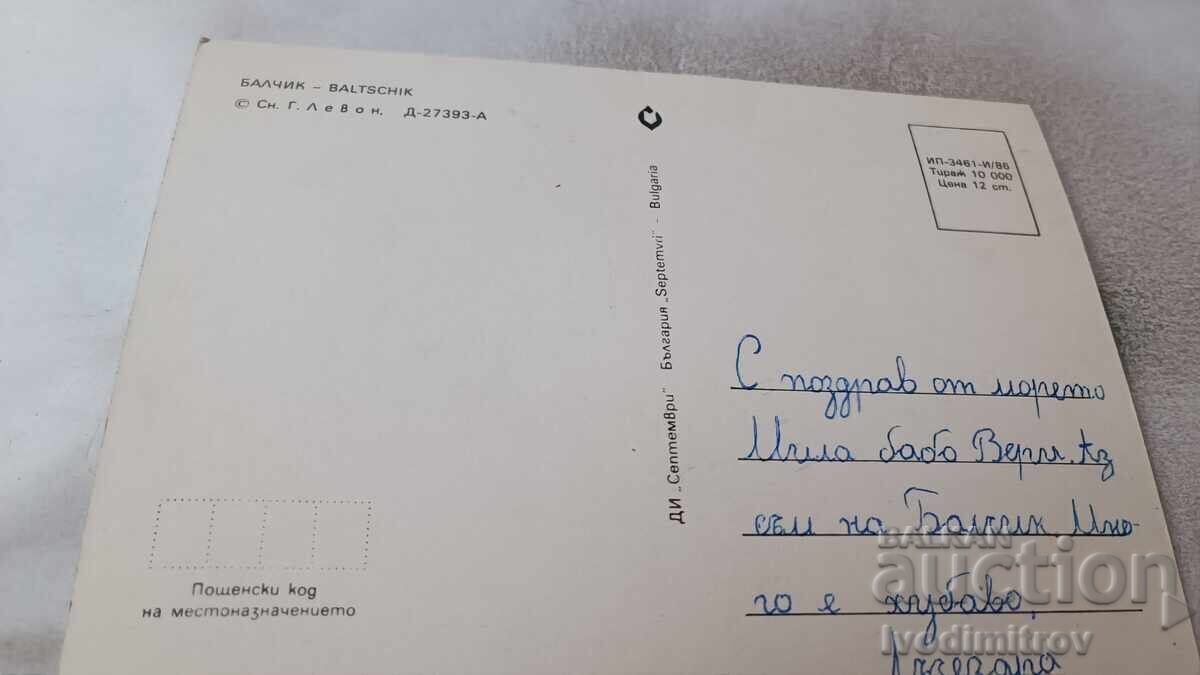 БАЛЧИК – BALTSCHIK
© Сн. Г. Левон. Д-27393-А
ИП-3461-И/86
Тираж 10 000
Цена 12 ст.
ДИ „Септември" България „Septemvri" - Bulgaria
С поздрав от морето
Мила бабо Верги. Аз
съм на Балчик. Мно-
го е хубаво.
Пощенски код
на местоназначението
BALKAN
auction
Ivodimitrov